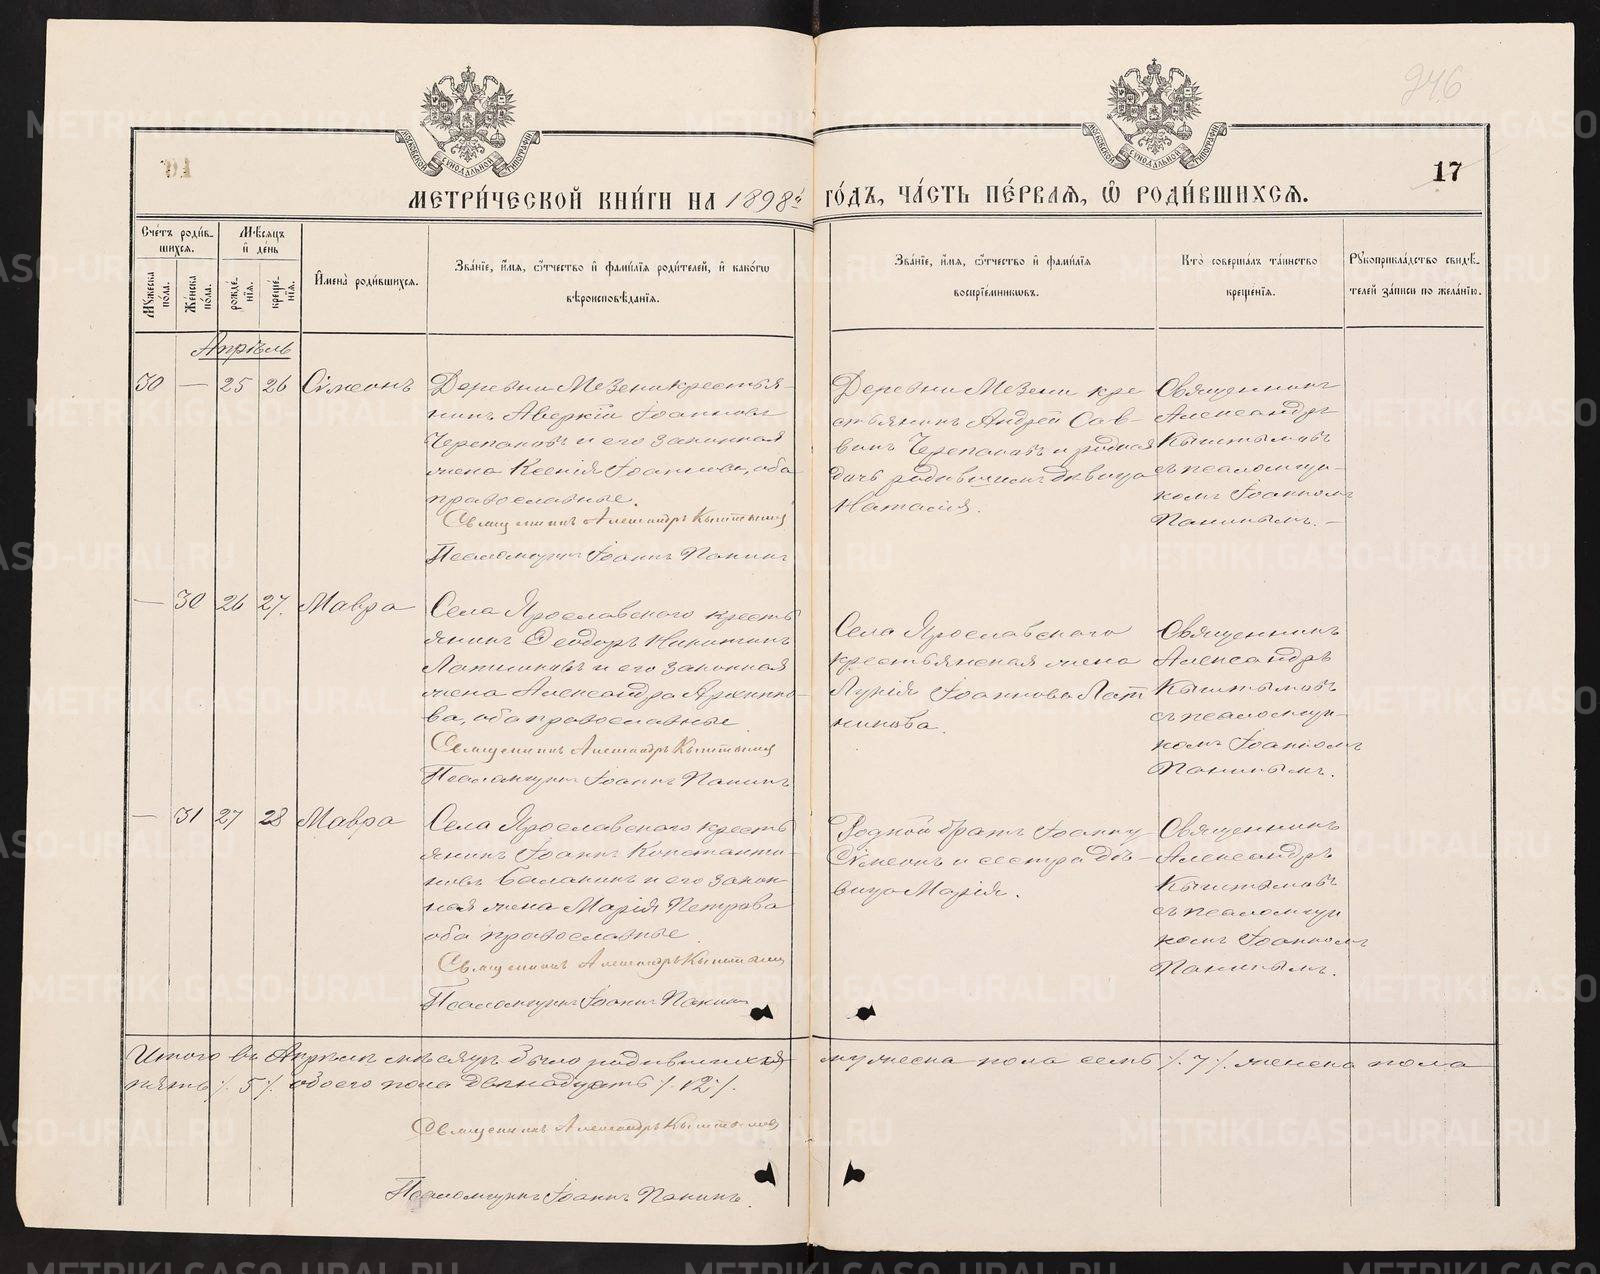 246
МОСКОВСКОЙ СУНОДАЛЬНОЙ ТИПОГРАФИИ
МОСКОВСКОЙ СУНОДАЛЬНОЙ ТИПОГРАФИИ
17
МЕТРИ́ЧЕСКОЙ КНИ́ГИ НА 1898й ГО́ДЪ, ЧА́СТЬ ПЕ́РВАѦ, Ѡ҆ РОДИ́ВШИХСѦ.
Сче́тъ роди́в-
шихсѧ.
Мѣ́сѧцъ
и҆ де́нь
Мꙋ́жеска по́ла.
Же́нска по́ла.
рожде́-
нїѧ.
креще́-
нїѧ.
И҆мена̀ роди́вшихсѧ.
Зва́нїе, и҆́мѧ, ѻ҆́тчество и҆ фами́лїѧ роди́телей, и҆ како́гѡ
вѣроисповѣ́данїѧ.
Зва́нїе, и҆́мѧ, ѻ҆́тчество и҆ фами́лїѧ
воспрїе́мникѡвъ.
Кто̀ соверша́лъ та́инство
креще́нїѧ.
Рꙋкоприкла́дство свидѣ́-
телей за́писи по жела́нїю.
Апрѣль
30 — 25 26 Сѵмеонъ
Деревни Мезени крестья-
нинъ Аверкій Іоанновъ
Черепановъ и его законная
жена Ксенія Іоаннова, оба
православные.
Священникъ Александръ Кыштымовъ
Псаломщикъ Іоаннъ Панинъ
Деревни Мезени кре
стьянинъ Андрей Сав-
винъ Черепановъ и родная
дочь родившихъ дѣвица
Наталія.
Священникъ
Александръ
Кыштымовъ
съ псаломщи-
комъ Іоанномъ
Панинымъ. —
— 30 26 27. Мавра
Села Ярославскаго кресть
янинъ Ѳеодоръ Никитинъ
Латниковъ и его законная
жена Александра Архиппо-
ва, оба православные
Священникъ Александръ Кыштымовъ
Псаломщикъ Іоаннъ Панинъ
Села Ярославскаго
крестьянская жена
Лукія Іоаннова Лат
никова.
Священникъ
Александръ
Кыштымовъ
съ псаломщи-
комъ Іоанномъ
Панинымъ.
— 31 27 28 Мавра
Села Ярославскаго кресть
янинъ Іоаннъ Константи-
новъ Балакинъ и его закон
ная жена Марія Петрова
оба православные
Священникъ Александръ Кыштымовъ
Псаломщикъ Іоаннъ Панинъ
Родной братъ Іоанну
Сѵмеонъ и сестра дѣ-
вица Марія.
Священникъ
Александръ
Кыштымовъ
съ псаломщи
комъ Іоанномъ
Панинымъ.
Итого въ Апрѣлѣ мѣсяцѣ было родившихся мужеска пола семь ./. 7 ./. женска пола
пять ./. 5 ./. обоего пола двѣнадцать ./. 12 ./.
Священникъ Александръ Кыштымовъ
Псаломщикъ Іоаннъ Панинъ.
METRIKI.GASO-URAL.RU